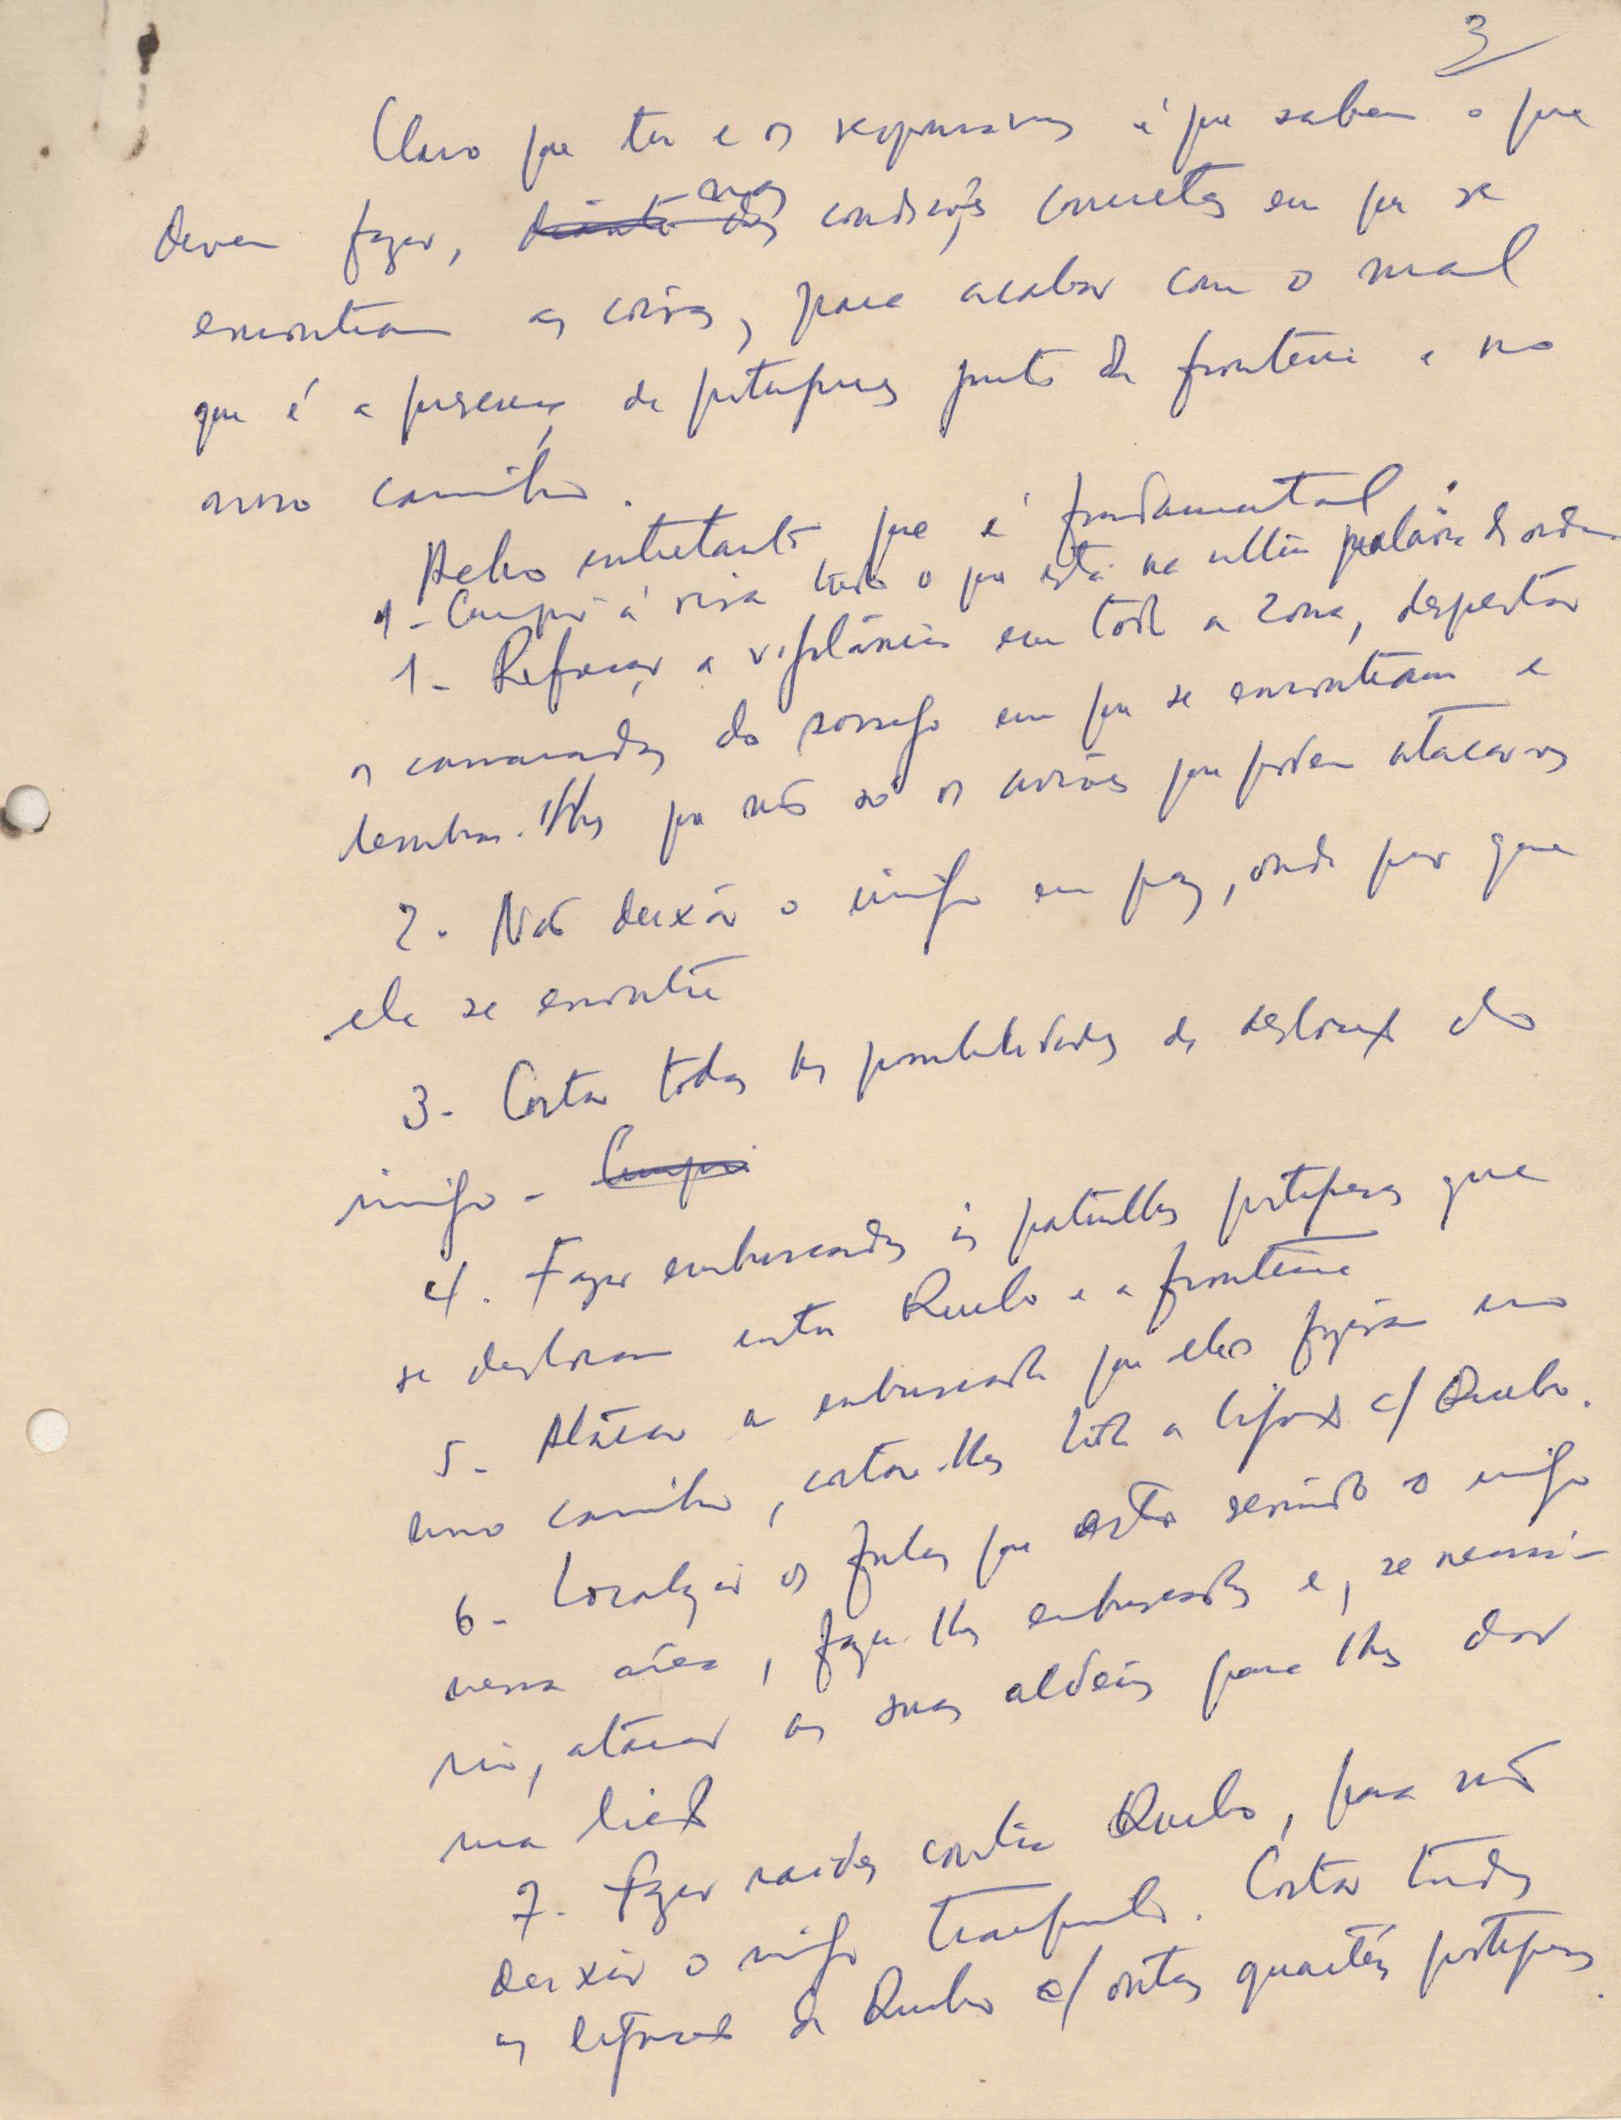 3
Claro que tu e os responsáveis é que sabem o que
devem fazer, diante das nas condições concretas em que se
encontram as coisas, para acabar com o mal
que é a presença de portugueses junto da fronteira e no
nosso caminho.
Acho entretanto, que é fundamental:
1- Cumprir à risca tudo o que está na última palavra de ordem
1- Reforçar a vigilância em toda a zona, despertar
os camaradas do sossego em que se encontram e
lembrar-lhes que não só os aviões que podem atacar-nos
2. Não deixar o inimigo em paz, onde quer que
ele se encontre
3- Cortar todas as possibilidades de deslocação do
inimigo - Cumprir
4. Fazer emboscadas às patrulhas portuguesas que
se deslocam entre Quebo e a fronteira
5- Atacar a emboscada que eles fizeram no
nosso caminho, cortar-lhes toda a ligação c/ Quebo.
6- Localizar os fulas que estão servindo o inimigo
nessa área, fazer-lhes emboscadas e, se necessá-
rio, atacar as suas aldeias para lhes dar
uma lição
7- Fazer raides contra Quebo, para não
deixar o inimigo tranquilo. Cortar todas
as ligações de Quebo c/ outros quartéis portugueses.